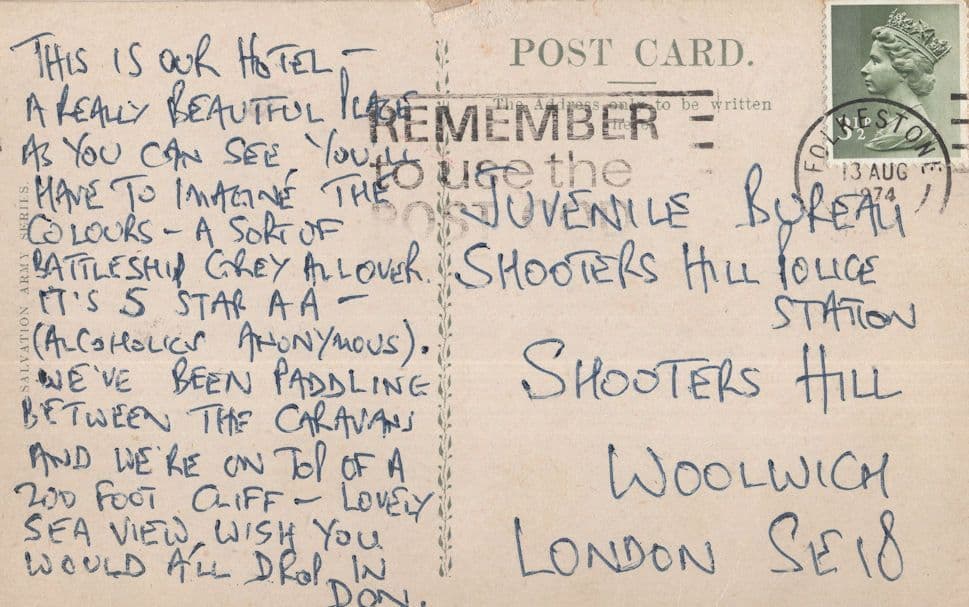 THIS IS OUR HOTEL -
A REALLY BEAUTIFUL PLACE
AS YOU CAN SEE, YOU'LL
HAVE TO IMAGINE THE
COLOURS - A SORT OF
BATTLESHIP GREY ALL OVER.
IT'S 5 STAR AA -
(ALCOHOLICS ANONYMOUS).
WE'VE BEEN PADDLING
BETWEEN THE CARAVANS
AND WE'RE ON TOP OF A
200 FOOT CLIFF - LOVELY
SEA VIEW, WISH YOU
WOULD ALL DROP IN
DON.
SALVATION ARMY SERIES.
POST CARD.
The Address only to be written
here
REMEMBER
to use the
POST
FOLKESTONE
13 AUG
1974
JUVENILE BUREAU
SHOOTERS HILL POLICE
STATION
SHOOTERS HILL
WOOLWICH
LONDON SE18